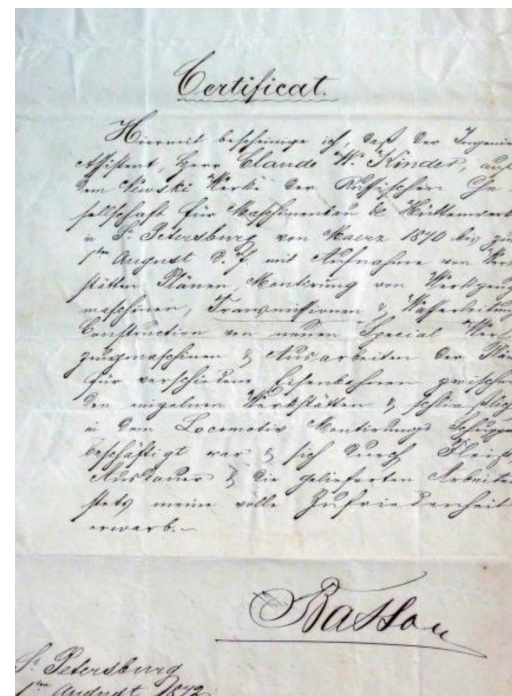 Certificat.
Hiermit bescheinige ich, daß der Ingenieur
Assistent, Herr Claude W. Kinder, auf
dem Newski Werke der Russischen Ge-
sellschaft für Maschinenbau & Hüttenwerke
in St. Petersburg von Maerz 1870 bis zum
1ten August d. J. mit Aufnahme von Werk-
stätten Plänen, Montirung von Werkzeug
maschinen, Transmissionen & Wasserleitung
Construction von neuen Special Werk
zeugmaschinen & Ausarbeiten der Pläne
für verschiedene Eisenbahnen zwischen
den einzelnen Werkstätten & schliesslich
in dem Locomotiv Montirungs Schuppen
beschäftigt war & sich durch Fleiß,
Ausdauer & die gelieferten Arbeiten
stets meine volle Zufriedenheit
erwarb.-
St. Petersburg
1ten August 1872